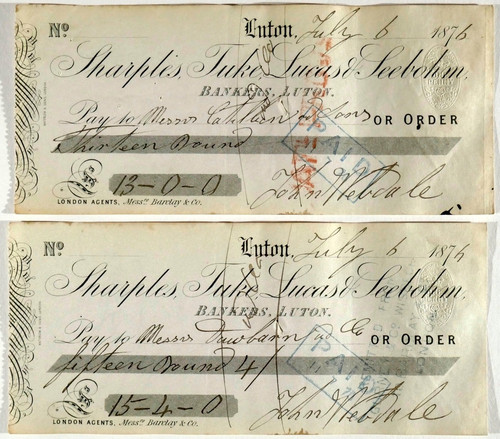 Nº Luton, July 6 1876
Sharples, Tuke, Lucas & Seebohm,
BANKERS, LUTON.
Pay to Messrs & Sons OR ORDER
Thirteen Pound
PAID
£ 13-0-0
LONDON AGENTS, Messrs. Barclay & Co.
Nº Luton, July 6 1876
Sharples, Tuke, Lucas & Seebohm,
BANKERS, LUTON.
Pay to Messrs Dawbarn and Co OR ORDER
fifteen Pound 4/
PAID
£ 15-4-0
LONDON AGENTS, Messrs. Barclay & Co.